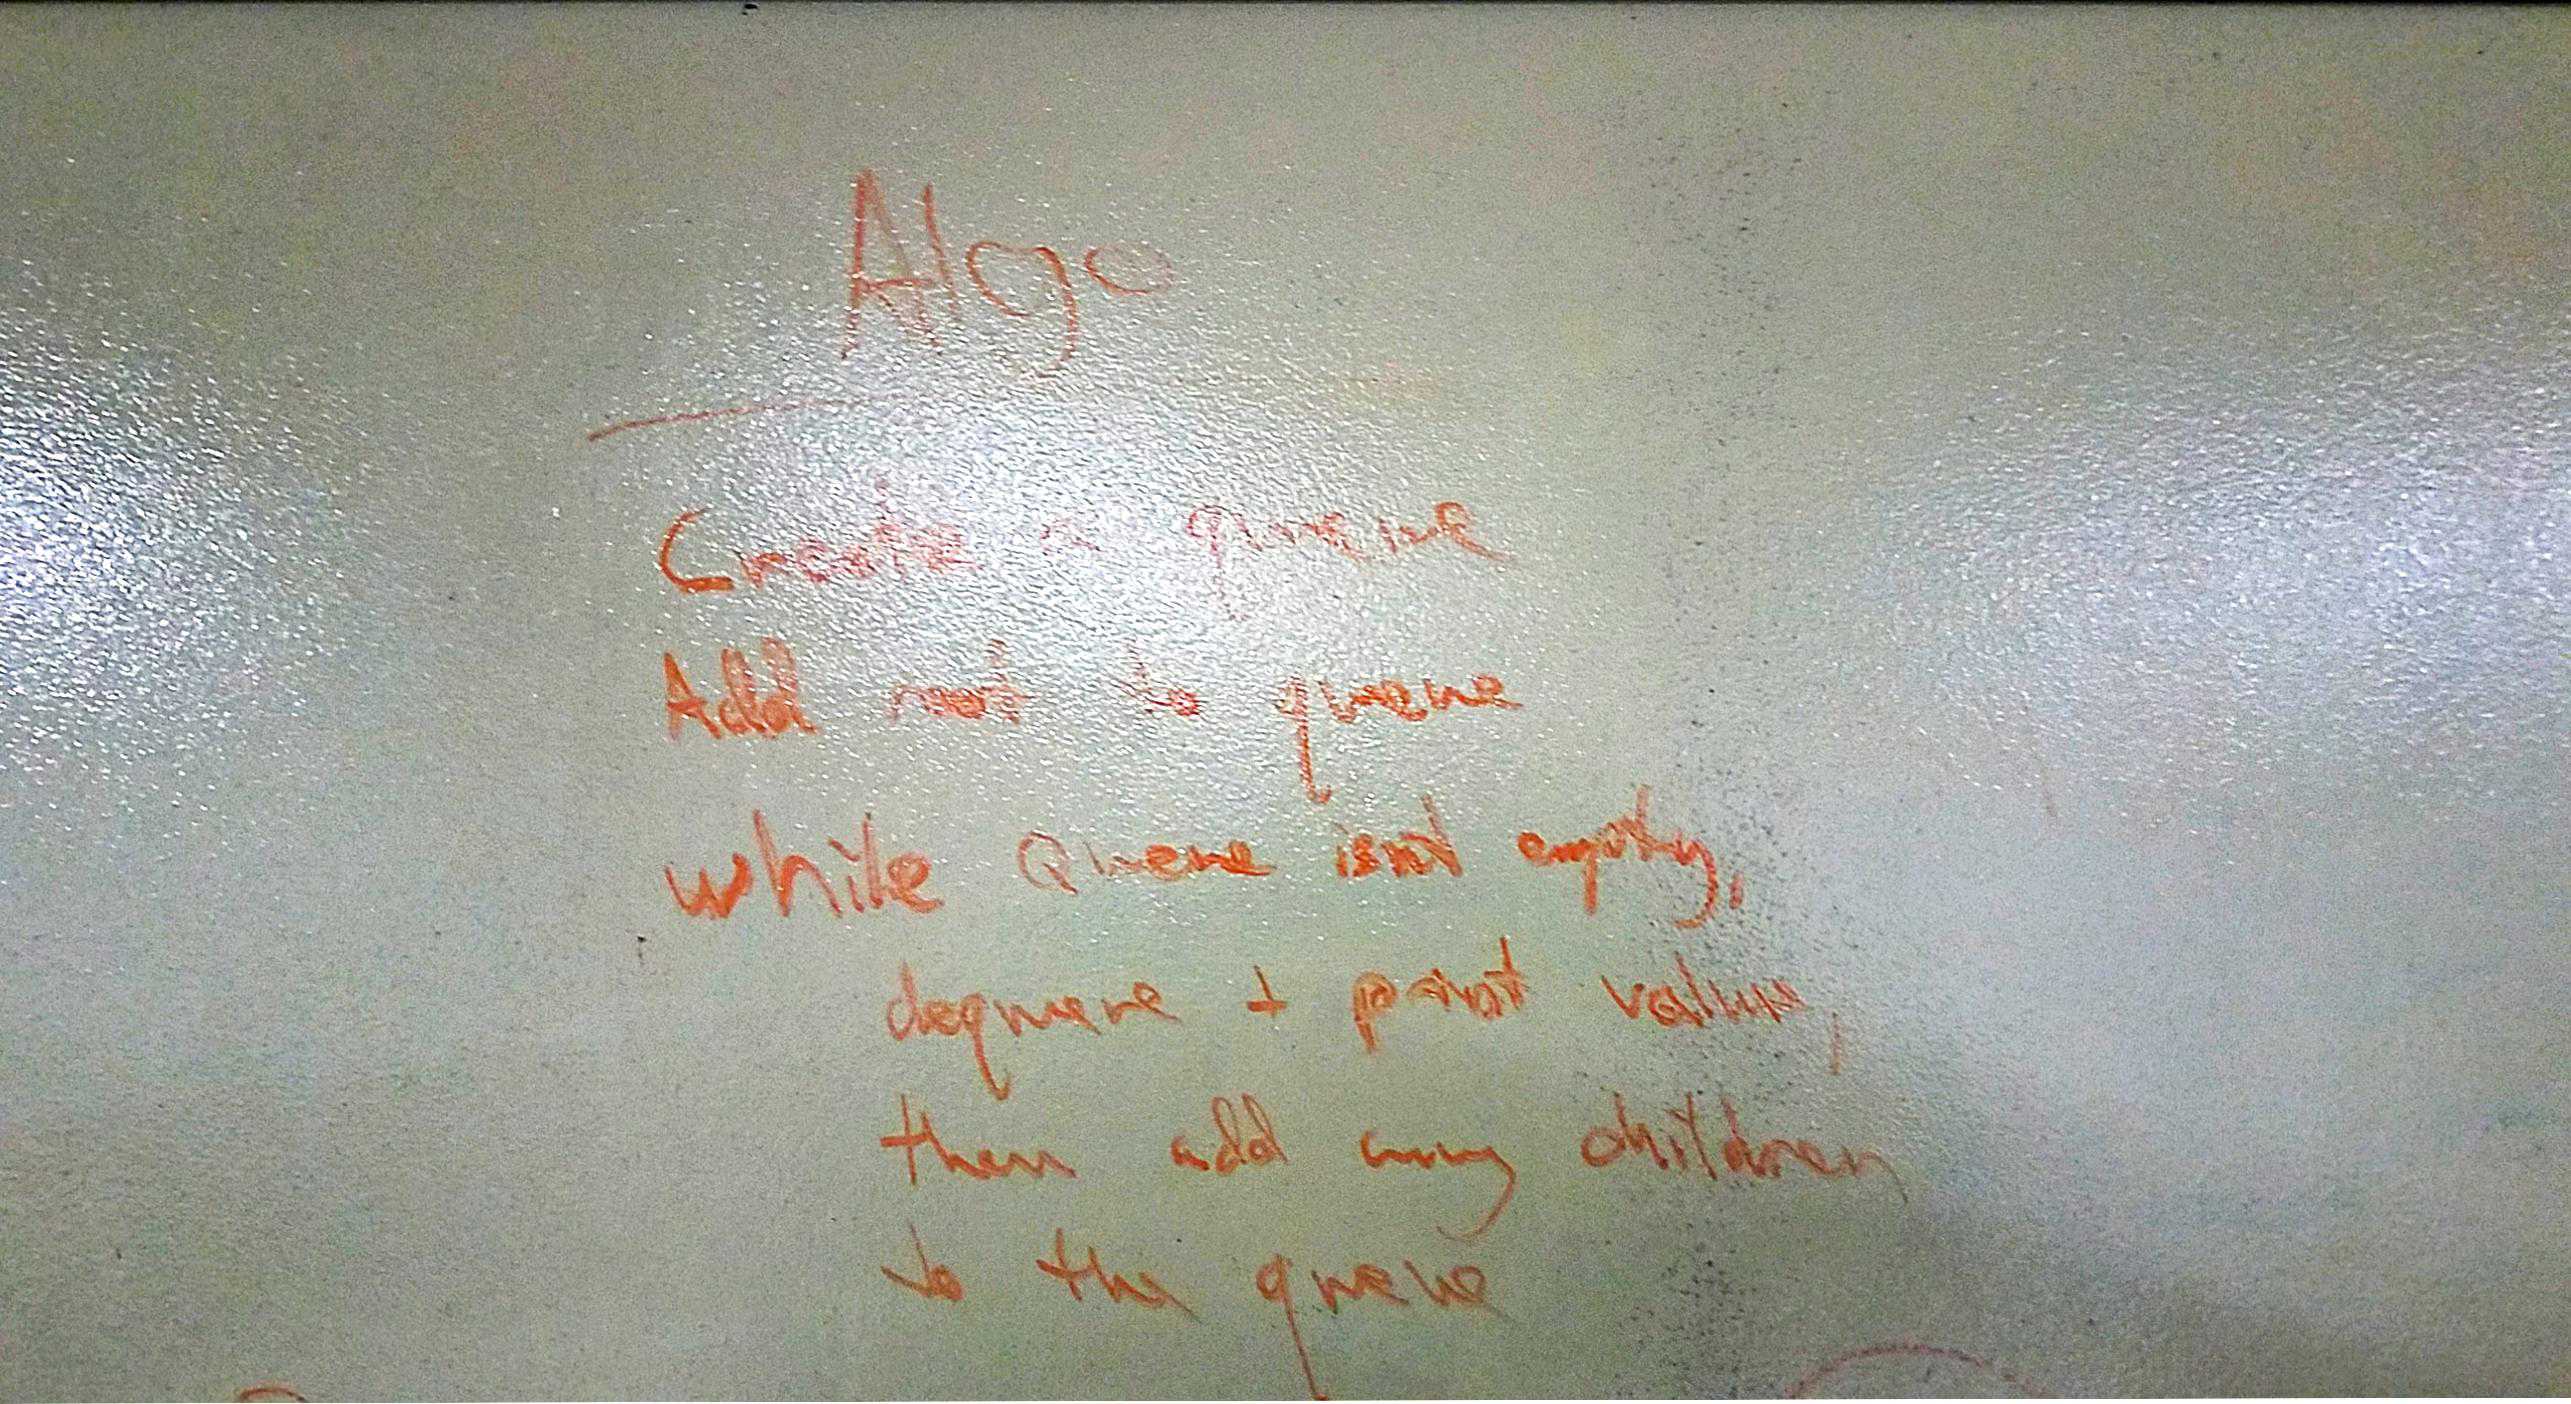 Algo
Create a queue
Add root to queue
while Queue isnt empty,
dequeue + print value,
then add any children
to the queue